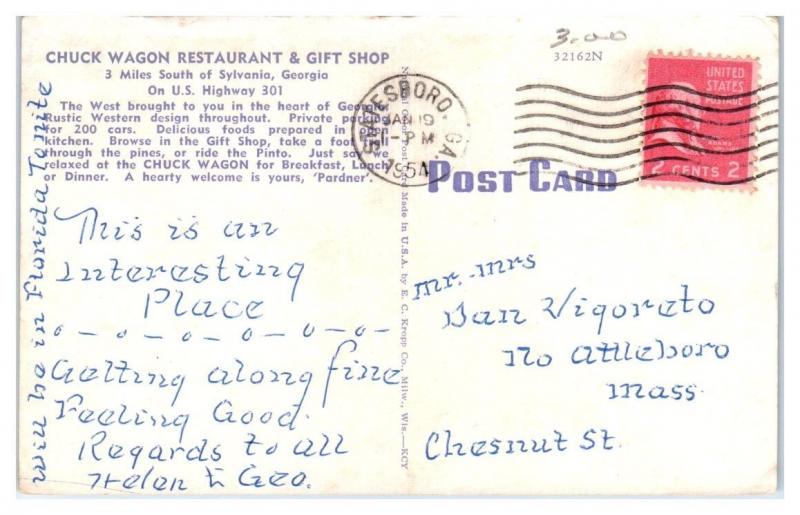 CHUCK WAGON RESTAURANT & GIFT SHOP
3 Miles South of Sylvania, Georgia
On U.S. Highway 301
The West brought to you in the heart of Georgia.
Rustic Western design throughout. Private parking
for 200 cars. Delicious foods prepared in open
kitchen. Browse in the Gift Shop, take a foot trail
through the pines, or ride the Pinto. Just say we
relaxed at the CHUCK WAGON for Breakfast, Lunch
or Dinner. A hearty welcome is yours, 'Pardner'.
This is an
Interesting
Place
Getting along fine
Feeling Good.
Regards to all
Helen & Geo.
Will be in Florida Tonite
Made in U.S.A. by E. C. Kropp Co., Milw., Wis.—KCY
3.00
32162N
ESBORO, GA
JAN 19
PM
1954
UNITED
STATES
POSTAGE
ADAMS
2 CENTS 2
POST CARD
Mr. Mrs
Dan Vigoreto
No Attleboro
Mass.
Chesnut St.